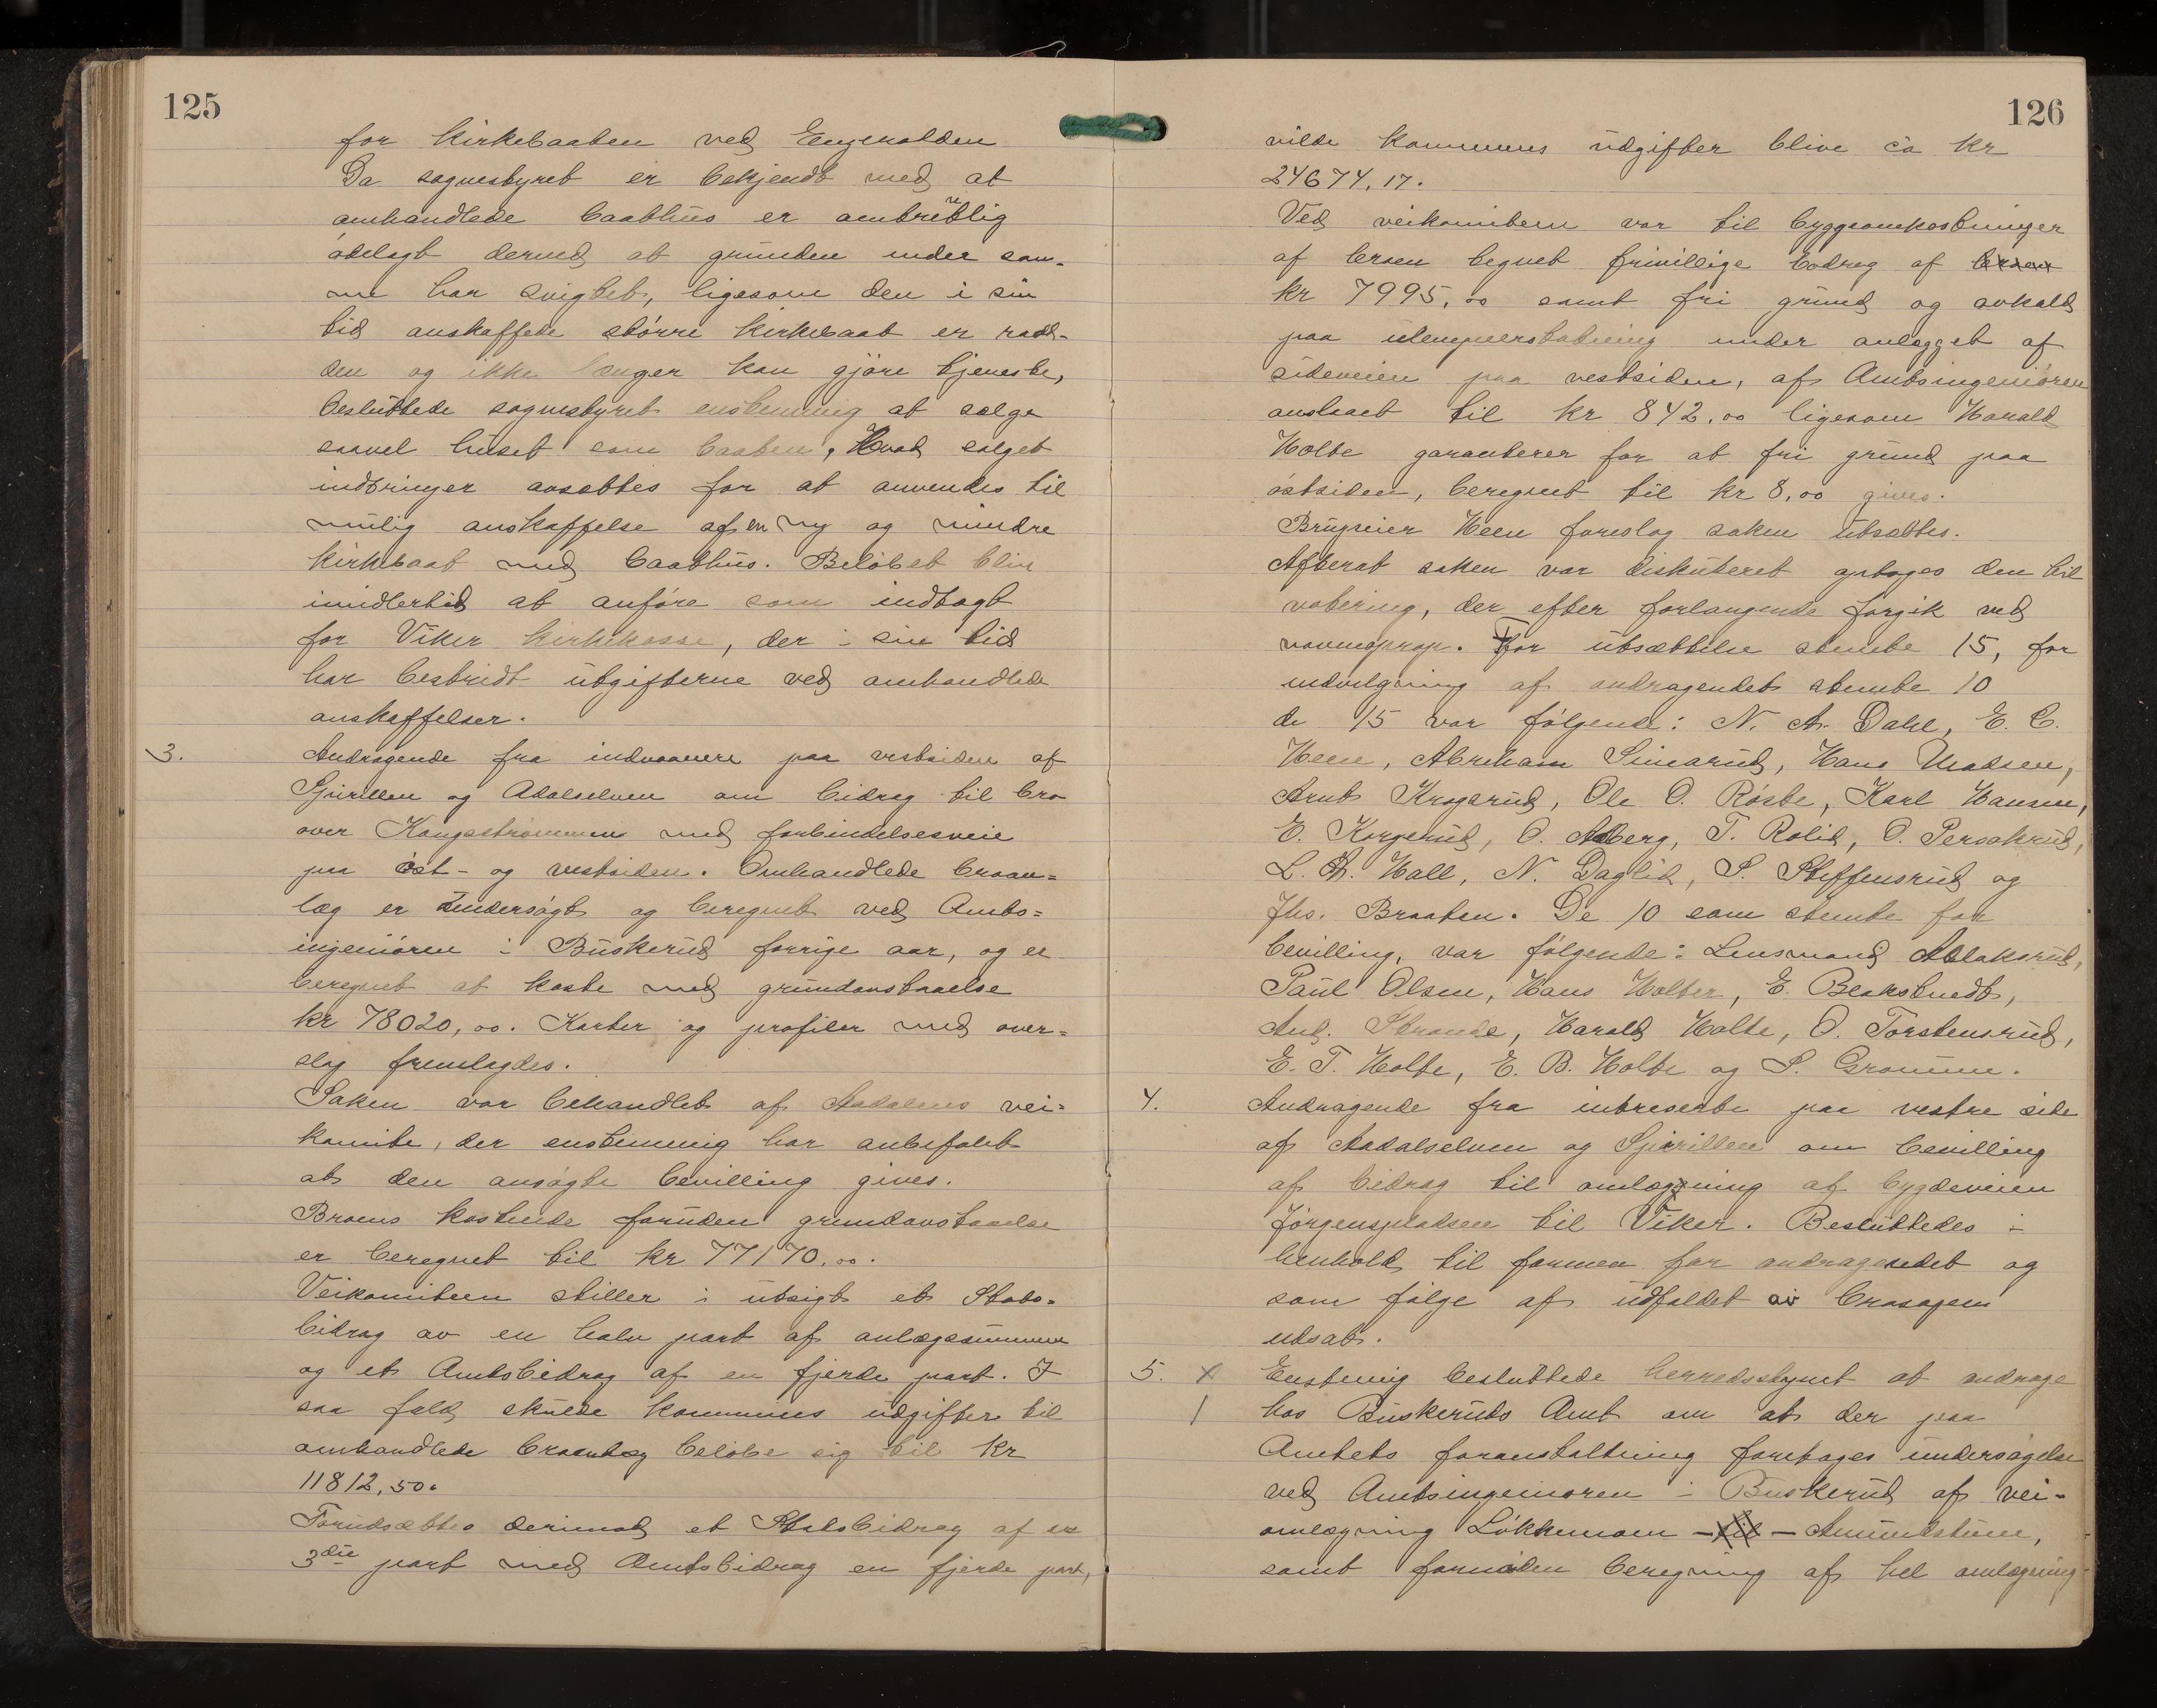 125
for kirkebaaten ved Engenolden
Da sognestyret er bekjendt med at
omhandlede baathus er omtrentlig
ödelagt derved at grunden under sam-
me har svigtet, ligesom den i sin
tid anskaffede större kirkebaat er raad-
den og ikke længer kan gjöre tjeneste,
besluttede sognestyret enstemmig at sælge
saavel huset som baaten, Hvad salget
indbringer avsættes for at anvendes til
mulig anskaffelse af en ny og mindre
kirkebaat med baathus. Belöbet blir
imidlertid at anföre som indtægt
for Viker kirkekasse, der i sin tid
har bestridt utgifterne ved omhandlede
anskaffelser.
3. Andragende fra indvaanere paa vestsiden af
Spirillen og Adalselven om bidrag til bro
over Kongsströmmen med forbindelsesveie
paa öst- og vestsiden. Omhandlede broan=
læg er undersögt og beregnet ved Amts=
ingeniören i Buskerud forrige aar, og er
beregnet at koste med grundavstaaelse
kr 78020,00. Karter og profiler med over=
slag fremlagdes.
Saken var behandlet af Aadalens vei=
komite, der enstemmig har anbefalet
at den ansögte bevilling gives.
Broens kostende foruden grundavstaaelse
er beregnet til kr 77170.00.
Veikomiteen stiller i utsigt et Stats=
bidrag av en halv part af anlægssummen
og et Amtsbidrag af en fjerde part. I
saa fald skulde kommunens udgifter til
omhandlede broanlæg belöbe sig til kr
11812,50.
Forudsættes derimod et Statsbidrag af en
3die part med Amtsbidrag en fjerde part,
126
vilde kommunens udgifter blive ca kr
24674,17.
Ved veikomiteen var til byggeomkostninger
af broen tegnet frivillige bidrag af broen
kr 7995,00 samt fri grund og avkald
paa ulempeerstatning under anlægget af
sideveien paa vestsiden, af Amtsingeniören
anslaaet til kr 842.00 ligesom Harald
Holte garanterer for at fri grund paa
östsiden, beregnet til kr 8,00 gives.
Brugseier Heen foreslog saken utsættes.
Efterat saken var diskuteret optoges den til
votering, der efter forlangende forgik ved
navneoprop. For utsættelse stemte 15, for
indvilgning af andragendet stemte 10
de 15 var fölgende: N. A. Dahl, E. C.
Heen, Abraham Simarud, Hans Madsen,
Arnt Krogsrud, Ole O. Röste, Karl Hansen,
E. Korgerud, O. Aaberg, T. Rolid, O. Persakrud,
L. Th. Hall, N. Daglid, S. Steffensrud og
Jhs. Braaten. De 10 som stemte for
bevilling, var fölgende: Lensmand Aslaksrud,
Paul Olsen, Hans Holter, E. Beakstuedt,
And. Strande, Harald Holte, O. Torstensrud,
E. T. Holte, E. B. Holte og S. Gromme.
4. Andragende fra intreserte paa vestre side
af Aadalselven og Spirillen om bevilling
af bidrag til omlægning af bygdeveien
Jörgenspladsen til Viker. Besluttedes i
henhold til formen for andragendet og
som fölge af udfaldet av brosagen
udsat.
5. x Enstemig besluttede herredsstyret at andrage
/ hos Buskeruds Amt om at der paa
Amtets foranstaltning foretages undersögelse
ved Amtsingeniören i Buskerud af vei-
omlægning Lökkemoen - til - Amundstuen,
samt foruden beregning af hel omlægning